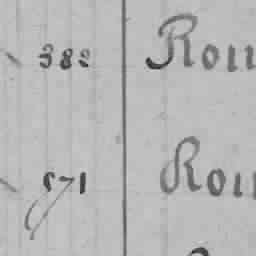 382 Rou
571 Rou